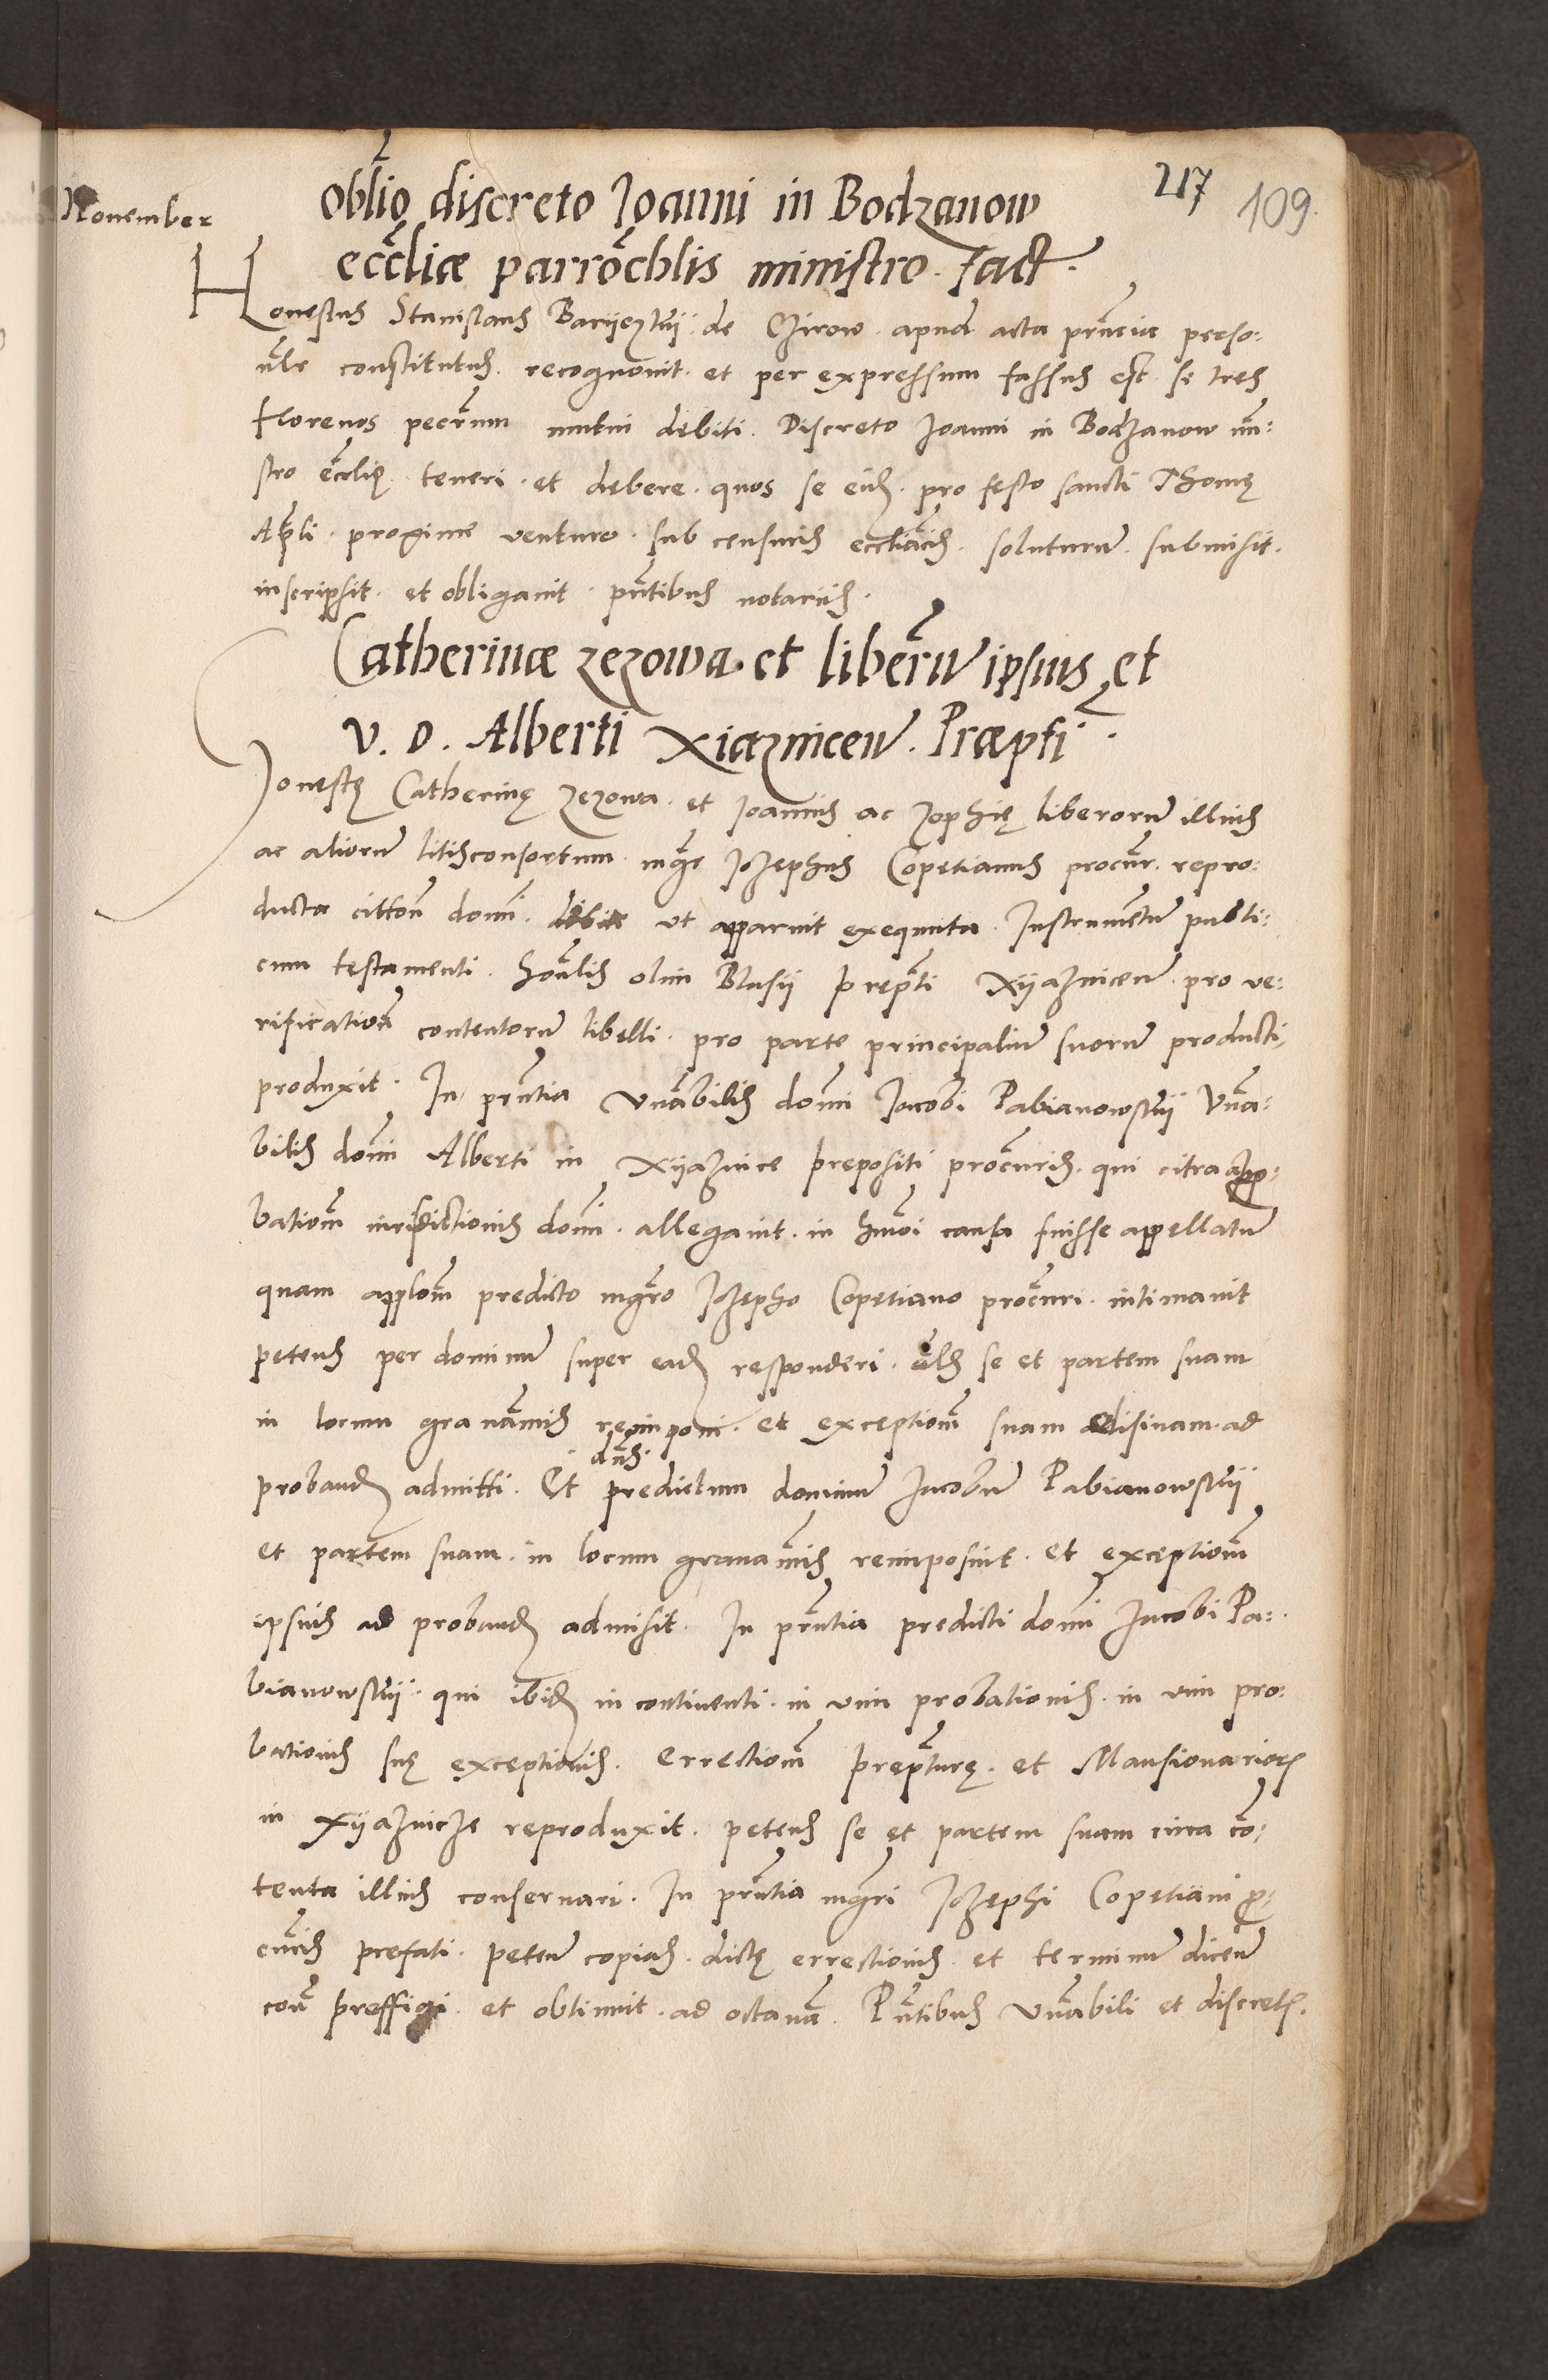 November
217
109.
Oblio discreto Joanni in Bodzanow
eccliae parrochlis ministro. fact.
Honestus Stanislaus de Czirow. apud acta pruncia perso:
nlr constitutus. recognouit. et per expressum fassus est se tres
florenos pecrum mutui debiti. Discreto Joanni in Bodzanow mi:
stro ecclię teneri. et debere. quos se eius. pro festo sancti Thomę
Apli. proxime venturo. sub censuris eccliacis. soluturum. submisit.
inscripsit. et obligauit. pntibus notariis.
Catherinae Zezowa. et liberru ipsius et
V. D. Alberti Xiaznicen. Praepti.
Honestę Catherinę Zezowa. et Joannis ac Zophię liberorum illius
ac aliorum litisconsortum. mgr Jozephus Copetianus procur. repro:
ducta citton domi. debite vt apparuit exequuta. Instrumentum publi:
cum testamenti. honlis olim Blasij prepti Xijaznicen. pro ve:
rificatiom contentorum libelli. pro parte principalium suorum producti
produxit. In prntia Vnabilis domi Jacobi Pabianowskij Vna:
bilis domi Alberti in Xijaznice prepositi procuris. qui citra appro:
batiom iurisdictionis domi. allegauit. in hmoi causa fuisse appellatum
quam applom predicto mgro Jozepho Copetiano procuri. intimauit
petens per dominum super ead responderi. als se et partem suam
in locum grauamis reimponi. et exceptiom suam elisiuam. ad
dns.
proband admitti. Et predictum dominum Jacobum Pabianowskij
et partem suam. in locum grauamis reimposuit. et exceptiom
ipsius ad proband admisit. In prntia predicti domi Jacobi Pa:
bianowskij. qui ibid in continenti. in vim probationis. in vim pro:
bationis suę exceptionis. errectiom prepturę. et Mansionarior
in Xijaznicze reproduxit. petens se et partem suam circa co:
tenta illius conseruari. In prntia mgri Jozephi Copetiani pro:
curis prefati. peten copias. dictę errectionis. et terminum dicen
con preffigi. et obtinuit. ad octaua. Pntibus Vnabili et discret.